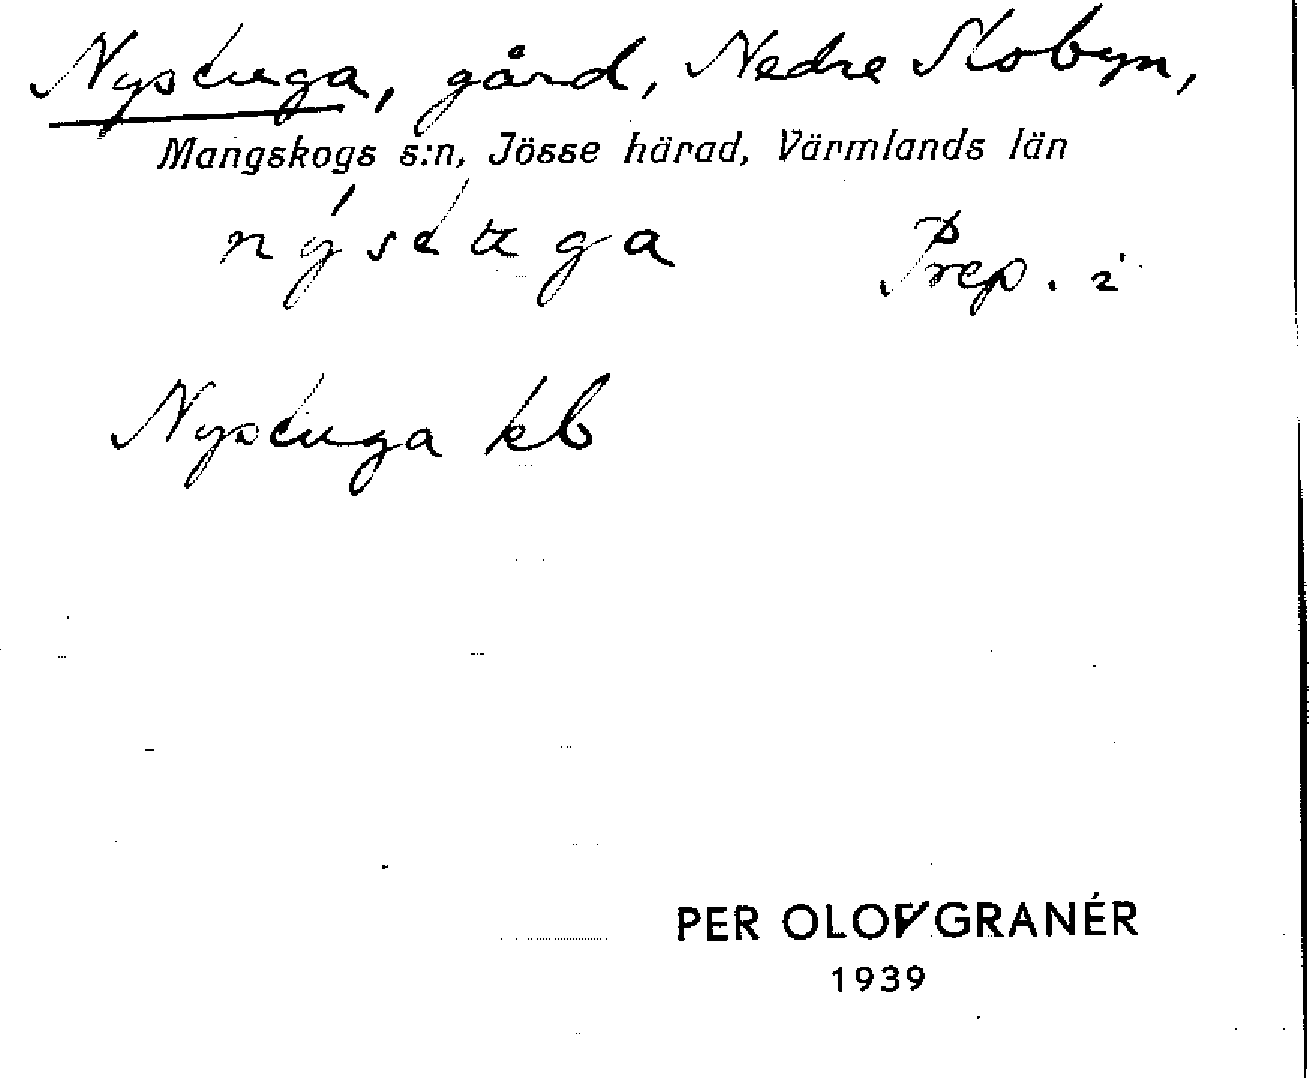 Nystuga, gård, Nedre Slobyn,
Mangskogs s:n, Jösse härad, Värmlands län
Prep. i
Nystuga kb
PER OLOF GRANÉR
1939